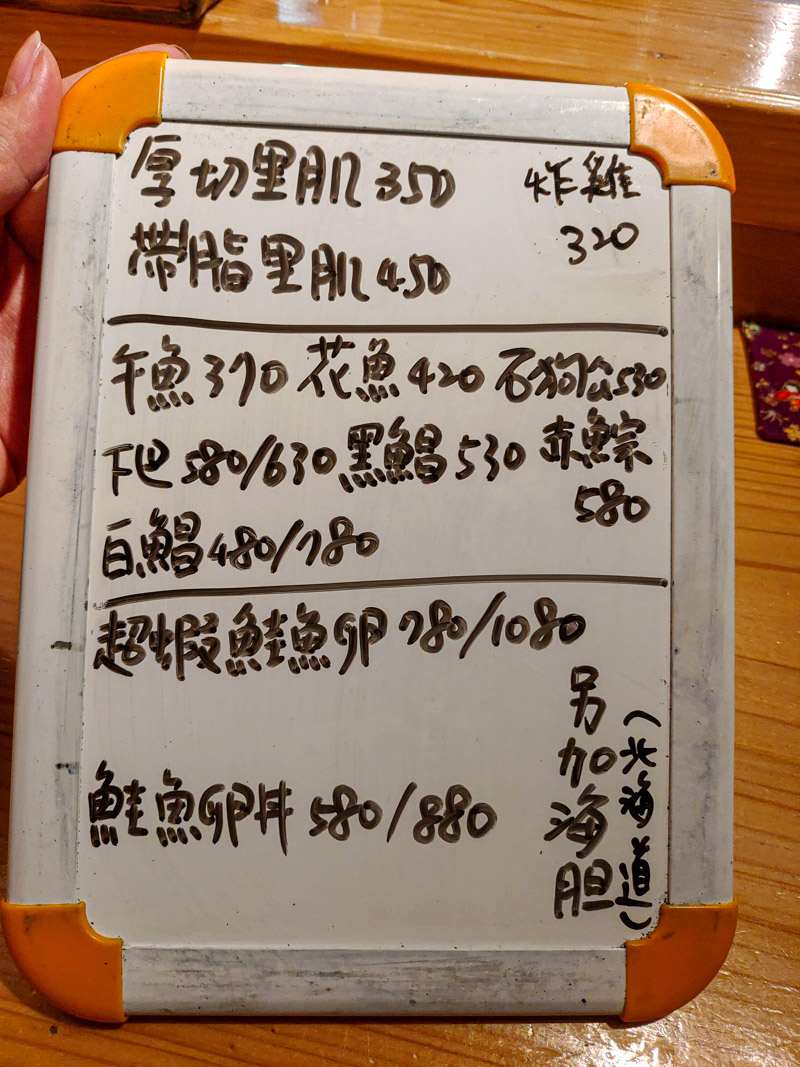 厚切里肌350
炸雞
320
帶脂里肌450
午魚370 花魚420 石狗公530
下巴580/630 黑鯧530 赤鯮
580
白鯧480/780
超蝦鮭魚卵780/1080
鮭魚卵丼 580/880
另加海胆
(北海道)